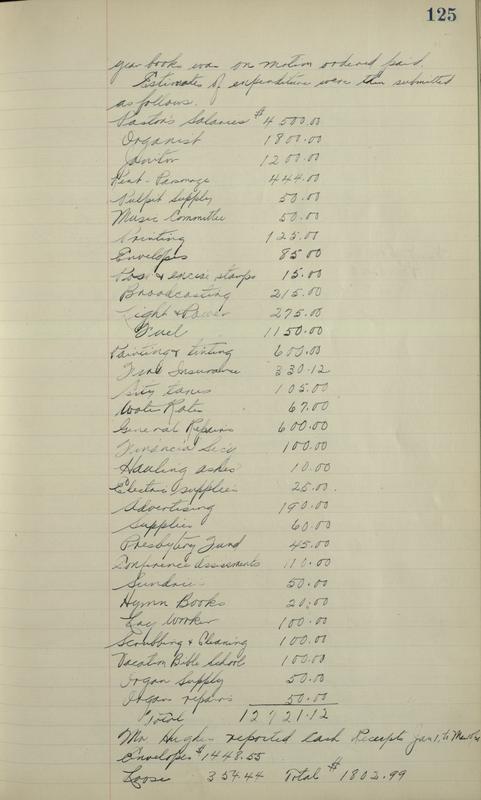 125
year books was on motion ordered paid.
Estimates of expenditure were then submitted
as follows.
Pastor's Salaries $4500.00
Organist 1800.00
Janitor 1200.00
Rent - Parsonage 444.00
Pulpit Supply 50.00
Music Committee 50.00
Printing 125.00
Envelopes 85.00
Post & excise stamps 15.00
Broadcasting 215.00
Light & Power 275.00
Fuel 1150.00
Painting & tinting 600.00
Fire Insurance 330.12
City taxes 105.00
Water Rates 67.00
General Repairs 600.00
Financial Secy 100.00
Hauling ashes 10.00
Electric supplies 25.00.
Advertising 190.00
Supplies 60.00
Presbytery Fund 45.00
Conference Assessments 110.00
Sundries 50.00
Hymn Books 20.00
Lay Worker 100.00
Scrubbing & Cleaning 100.00
Vacation Bible School 100.00
Organ Supply 50.00
Organ repairs 50.00
Total 12721.12
Mr. Hughes reported Cash Receipts Jan 1, to
Envelopes $1448.55
Loose 354.44 Total $1802.99